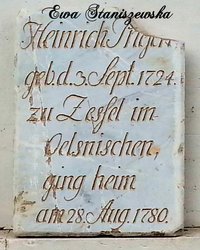 Ewa Staniszewska
Heinrich
geb. d. 3. Sept. 1724.
zu Zessel im
Oelsnischen,
ging heim
am 28. Aug. 1780.